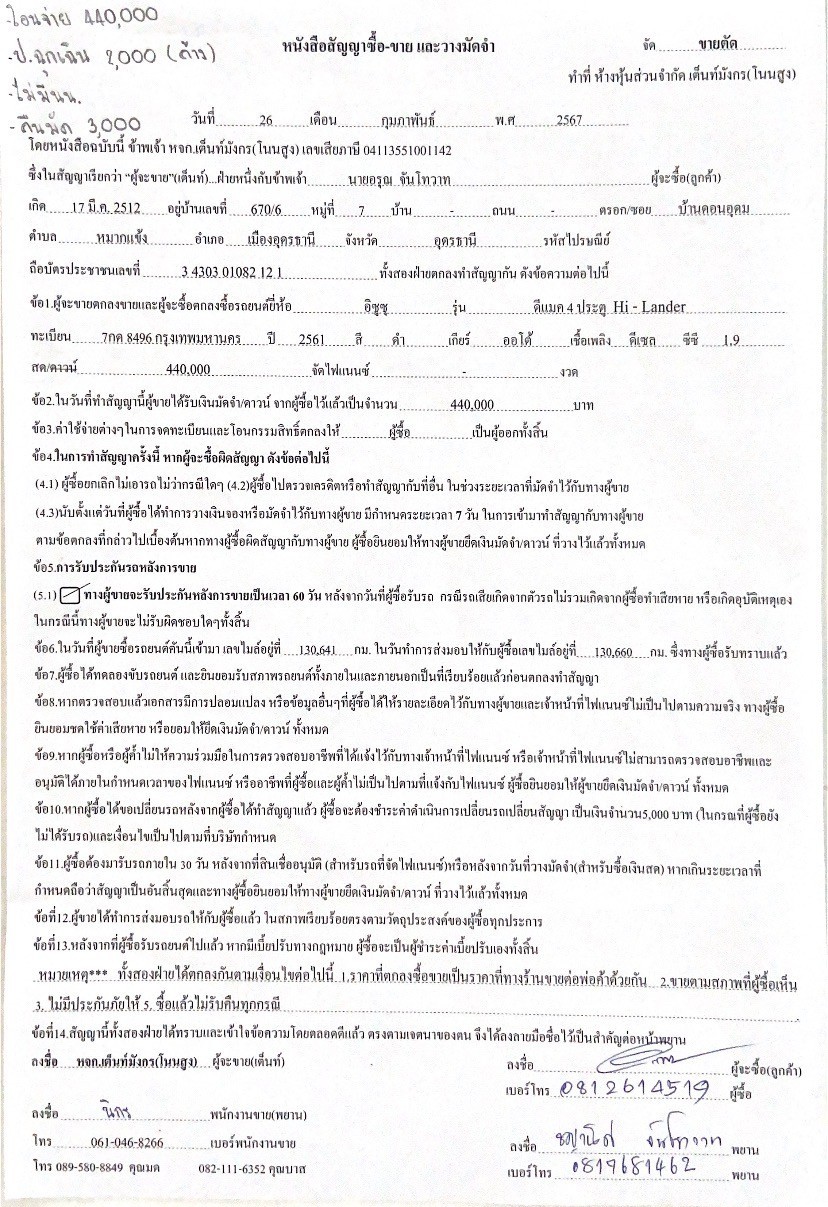 -โอนจ่าย 440,000
-ป.ฉุกเฉิน 2,000 (ค้าง)
-ไม่มีนน.
-คืนมัด 3,000
หนังสือสัญญาซื้อ-ขาย และวางมัดจำ
จัด ขายตัด
ทำที่ ห้างหุ้นส่วนจำกัด เต็นท์มังกร(โนนสูง)
วันที่ 26 เดือน กุมภาพันธ์ พ.ศ 2567
โดยหนังสือฉบับนี้ ข้าพเจ้า หจก.เต็นท์มังกร(โนนสูง) เลขเสียภาษี 04113551001142
ซึ่งในสัญญาเรียกว่า "ผู้จะขาย"(เต็นท์)...ฝ่ายหนึ่งกับข้าพเจ้า นายอรุณ จันโทวาท ผู้จะซื้อ(ลูกค้า)
เกิด 17 มี.ค. 2512 อยู่บ้านเลขที่ 670/6 หมู่ที่ 7 บ้าน - ถนน - ตรอก/ซอย บ้านดอนอุดม
ตำบล หมากแข้ง อำเภอ เมืองอุดรธานี จังหวัด อุดรธานี รหัสไปรษณีย์
ถือบัตรประชาชนเลขที่ 3 4303 01082 12 1 ทั้งสองฝ่ายตกลงทำสัญญากัน ดังข้อความต่อไปนี้
ข้อ1.ผู้จะขายตกลงขายและผู้จะซื้อตกลงซื้อรถยนต์ยี่ห้อ อิซูซุ รุ่น ดีแมค 4 ประตู Hi - Lander
ทะเบียน 7กด 8496 กรุงเทพมหานคร ปี 2561 สี ดำ เกียร์ ออโต้ เชื้อเพลิง ดีเซล ซีซี 1.9
สด/ดาวน์ 440,000 จัดไฟแนนซ์ - งวด
ข้อ2.ในวันที่ทำสัญญานี้ผู้ขายได้รับเงินมัดจำ/ดาวน์ จากผู้ซื้อไว้แล้วเป็นจำนวน 440,000 บาท
ข้อ3.ค่าใช้จ่ายต่างๆในการจดทะเบียนและโอนกรรมสิทธิ์ตกลงให้ ผู้ซื้อ เป็นผู้ออกทั้งสิ้น
ข้อ4.ในการทำสัญญาครั้งนี้ หากผู้จะซื้อผิดสัญญา ดังข้อต่อไปนี้
(4.1) ผู้ซื้อยกเลิกไม่เอารถไม่ว่ากรณีใดๆ (4.2)ผู้ซื้อไปตรวจเครดิตหรือทำสัญญากับที่อื่น ในช่วงระยะเวลาที่มัดจำไว้กับทางผู้ขาย
(4.3)นับตั้งแต่วันที่ผู้ซื้อได้ทำการวางเงินจองหรือมัดจำไว้กับทางผู้ขาย มีกำหนดระยะเวลา 7 วัน ในการเข้ามาทำสัญญากับทางผู้ขาย
ตามข้อตกลงที่กล่าวไปเบื้องต้นหากทางผู้ซื้อผิดสัญญากับทางผู้ขาย ผู้ซื้อยินยอมให้ทางผู้ขายยึดเงินมัดจำ/ดาวน์ ที่วางไว้แล้วทั้งหมด
ข้อ5.การรับประกันรถหลังการขาย
(5.1) ทางผู้ขายจะรับประกันหลังการขายเป็นเวลา 60 วัน หลังจากวันที่ผู้ซื้อรับรถ กรณีรถเสียเกิดจากตัวรถไม่รวมเกิดจากผู้ซื้อทำเสียหาย หรือเกิดอุบัติเหตุเอง
ในกรณีนี้ทางผู้ขายจะไม่รับผิดชอบใดๆทั้งสิ้น
ข้อ6.ในวันที่ผู้ขายซื้อรถยนต์คันนี้เข้ามา เลขไมล์อยู่ที่ 130,641 กม. ในวันทำการส่งมอบให้กับผู้ซื้อเลขไมล์อยู่ที่ 130,660 กม. ซึ่งทางผู้ซื้อรับทราบแล้ว
ข้อ7.ผู้ซื้อได้ทดลองขับรถยนต์ และยินยอมรับสภาพรถยนต์ทั้งภายในและภายนอกเป็นที่เรียบร้อยแล้วก่อนตกลงทำสัญญา
ข้อ8.หากตรวจสอบแล้วเอกสารมีการปลอมแปลง หรือข้อมูลอื่นๆที่ผู้ซื้อได้ให้รายละเอียดไว้กับทางผู้ขายและเจ้าหน้าที่ไฟแนนซ์ไม่เป็นไปตามความจริง ทางผู้ซื้อ
ยินยอมชดใช้ค่าเสียหาย หรือยอมให้ยึดเงินมัดจำ/ดาวน์ ทั้งหมด
ข้อ9.หากผู้ซื้อหรือผู้ค้ำไม่ให้ความร่วมมือในการตรวจสอบอาชีพที่ได้แจ้งไว้กับทางเจ้าหน้าที่ไฟแนนซ์ หรือเจ้าหน้าที่ไฟแนนซ์ไม่สามารถตรวจสอบอาชีพและ
อนุมัติได้ภายในกำหนดเวลาของไฟแนนซ์ หรืออาชีพที่ผู้ซื้อและผู้ค้ำไม่เป็นไปตามที่แจ้งกับไฟแนนซ์ ผู้ซื้อยินยอมให้ผู้ขายยึดเงินมัดจำ/ดาวน์ ทั้งหมด
ข้อ10.หากผู้ซื้อได้ขอเปลี่ยนรถหลังจากผู้ซื้อได้ทำสัญญาแล้ว ผู้ซื้อจะต้องชำระค่าดำเนินการเปลี่ยนรถเปลี่ยนสัญญา เป็นเงินจำนวน5,000 บาท (ในกรณีที่ผู้ซื้อยัง
ไม่ได้รับรถ)และเงื่อนไขเป็นไปตามที่บริษัทกำหนด
ข้อ11.ผู้ซื้อต้องมารับรถภายใน 30 วัน หลังจากที่สินเชื่ออนุมัติ (สำหรับรถที่จัดไฟแนนซ์)หรือหลังจากวันที่วางมัดจำ(สำหรับซื้อเงินสด) หากเกินระยะเวลาที่
กำหนดถือว่าสัญญาเป็นอันสิ้นสุดและทางผู้ซื้อยินยอมให้ทางผู้ขายยึดเงินมัดจำ/ดาวน์ ที่วางไว้แล้วทั้งหมด
ข้อที่12.ผู้ขายได้ทำการส่งมอบรถให้กับผู้ซื้อแล้ว ในสภาพเรียบร้อยตรงตามวัตถุประสงค์ของผู้ซื้อทุกประการ
ข้อที่13.หลังจากที่ผู้ซื้อรับรถยนต์ไปแล้ว หากมีเบี้ยปรับทางกฎหมาย ผู้ซื้อจะเป็นผู้ชำระค่าเบี้ยปรับเองทั้งสิ้น
หมายเหตุ*** ทั้งสองฝ่ายได้ตกลงกันตามเงื่อนไขต่อไปนี้ 1.ราคาที่ตกลงซื้อขายเป็นราคาที่ทางร้านขายต่อพ่อค้าด้วยกัน 2.ขายตามสภาพที่ผู้ซื้อเห็น
3. ไม่มีประกันภัยให้ 5. ซื้อแล้วไม่รับคืนทุกกรณี
ข้อที่14.สัญญานี้ทั้งสองฝ่ายได้ทราบและเข้าใจข้อความโดยตลอดดีแล้ว ตรงตามเจตนาของตน จึงได้ลงลายมือชื่อไว้เป็นสำคัญต่อหน้าพยาน
ลงชื่อ หจก.เต็นท์มังกร(โนนสูง) ผู้จะขาย(เต็นท์)
ลงชื่อ ผู้จะซื้อ(ลูกค้า)
เบอร์โทร 0812614519 ผู้ซื้อ
ลงชื่อ นิกร พนักงานขาย(พยาน)
โทร 061-046-8266 เบอร์พนักงานขาย
ลงชื่อ จันโทวาท พยาน
โทร 089-580-8849 คุณมด 082-111-6352 คุณบาส
เบอร์โทร 0819681462 พยาน